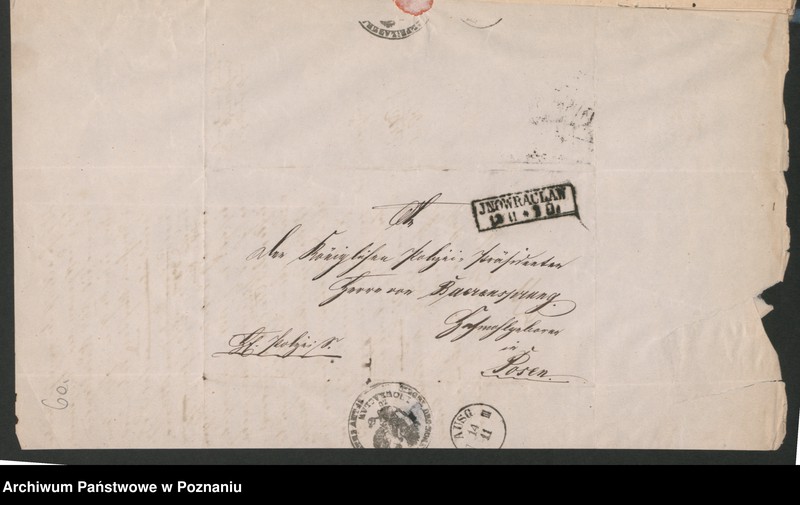 JNOWRACŁAW
An
den Königlichen Polizei-Präsidenten
Herrn von Baerensprung
Hochwohlgeboren
in
Posen.
60.
AUSG III
14
11
Archiwum Państwowe w Poznaniu